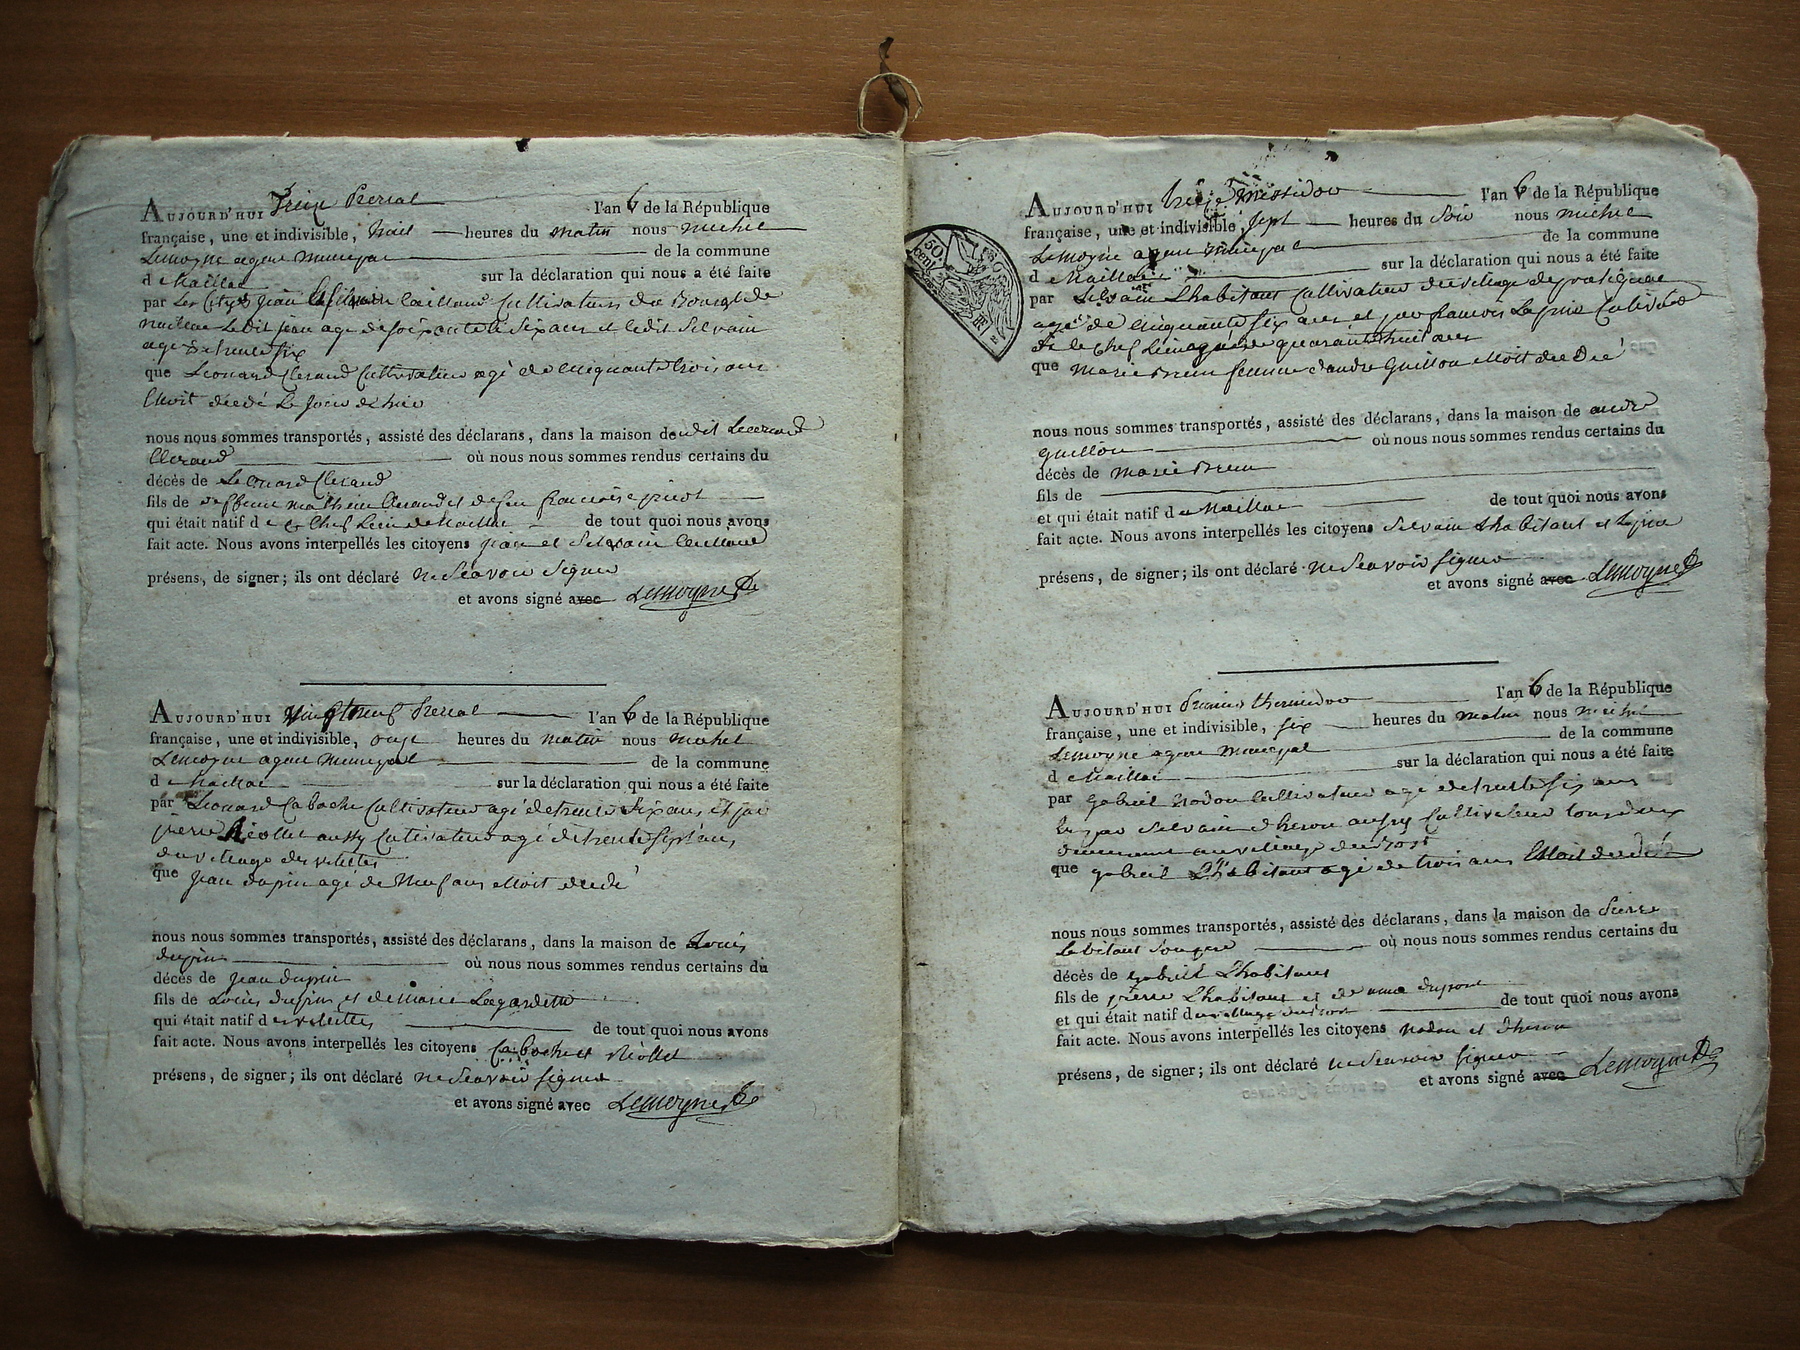 AUJOURD'HUI Treize Prerial l'an 6 de la République
française, une et indivisible, huit heures du matin nous michel
Lemoyne agent municipal de la commune
d e Maillac sur la déclaration qui nous a été faite
par Les Jean Silvain Cultivateurs Du Bourg de
Le dit jean agé de soixante six ans et ledit Silvain
agé de trente six
que Leonard Clerand Cultivateur agé de cinquante trois ans
Etoit décédé Le Jour de hier
nous nous sommes transportés, assisté des déclarans, dans la maison de udit Leonard
Clerand où nous nous sommes rendus certains du
décès de Leonard Clerand
fils de deffunt mathieu Clerand et de feu françoise
qui était natif d e Ce Chef Lieu de Maillac de tout quoi nous avons
fait acte. Nous avons interpellés les citoyens jean et Silvain
présens, de signer; ils ont déclaré ne Scavoir Signer
et avons signé avec Lemoyne
AUJOURD'HUI Vingt neuf Prerial l'an 6 de la République
française, une et indivisible, onze heures du matin nous michel
Lemoyne agent Municipal de la commune
d e Maillac sur la déclaration qui nous a été faite
par Leonard Caboche Cultivateur agé de trente Six ans et par
pierre Riollet aussy Cultivateur agé de trente Sept ans
du village des
que Jean dupin agé de Neuf ans Etoit décédé
nous nous sommes transportés, assisté des déclarans, dans la maison de Louis
dupin où nous nous sommes rendus certains du
décès de Jean dupin
fils de Louis dupin et de marie Lagardette
qui était natif d de tout quoi nous avons
fait acte. Nous avons interpellés les citoyens Caboche et Riollet
présens, de signer; ils ont déclaré ne Scavoir signer
et avons signé avec Lemoyne
50 cent
AUJOURD'HUI treize Messidor l'an 6 de la République
française, une et indivisible, Sept heures du Soir nous michel
Lemoyne agent municipal de la commune
d e Maillac sur la déclaration qui nous a été faite
par Silvain Lhabitant Cultivateur du village de
agé de cinquante six ans et par francois Lapine Cultivateur
de le Chef Lieu agé de quarante huit ans
que Marie Brun femme d'andre Guillon Etoit décédé
nous nous sommes transportés, assisté des déclarans, dans la maison de andre
Guillon où nous nous sommes rendus certains du
décès de Marie Brun
fils de
et qui était natif d e Maillac de tout quoi nous avons
fait acte. Nous avons interpellés les citoyens Silvain Lhabitant et Lapine
présens, de signer; ils ont déclaré ne Scavoir Signer
et avons signé avec Lemoyne
AUJOURD'HUI Premier thermidor l'an 6 de la République
française, une et indivisible, six heures du matin nous michel
Lemoyne agent Municipal de la commune
d e Maillac sur la déclaration qui nous a été faite
par gabriel Nadon Cultivateur agé de trente six ans
et par Silvain dheron aussy Cultivateur tous deux
demeurant au village du
que gabriel Lhabitant agé de trois ans Etoit décédé
nous nous sommes transportés, assisté des déclarans, dans la maison de Pierre
Labitant Son pere où nous nous sommes rendus certains du
décès de gabriel Lhabitant
fils de pierre Lhabitant et de anne dupont
et qui était natif du village du de tout quoi nous avons
fait acte. Nous avons interpellés les citoyens Nadon et dheron
présens, de signer; ils ont déclaré ne Scavoir signer
et avons signé avec Lemoyne